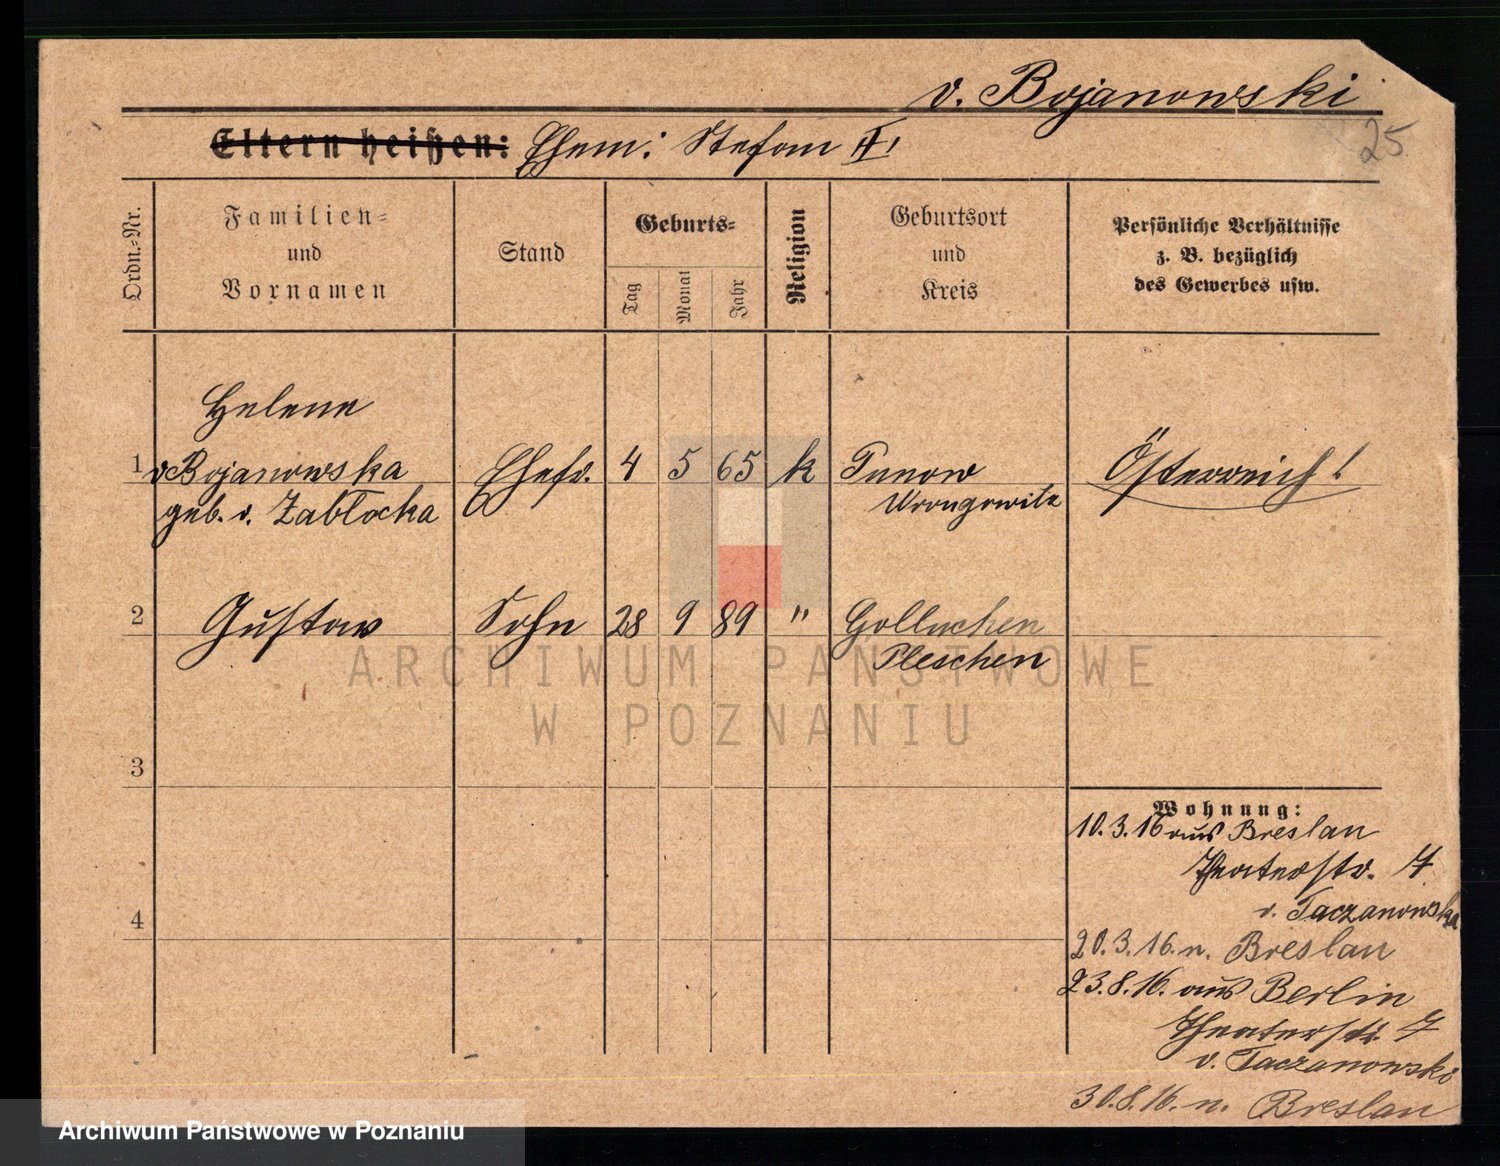 v. Bojanowski
25
Eltern heißen: Ehem: Stefan II,
Ordn.-Nr.
Familien-
und
Vornamen
Stand
Geburts-
Tag
Monat
Jahr
Religion
Geburtsort
und
Kreis
Persönliche Verhältnisse
z. B. bezüglich
des Gewerbes usw.
Helene
1 v Bojanowska Ehefr. 4 5 65 k Tunow Österreich!
geb. v. Zabłocka Wrongrowitz
2 Gustav Sohn 28 9 89 " Golluchen
Pleschen
ARCHIWUM PAŃSTWOWE
W POZNANIU
3
Wohnung:
10.3.16 aus Breslau
Theaterstr. 7
v. Taczanowska
4
20.3.16. n. Breslau
23.8.16. aus Berlin
Theaterstr. 7
v. Taczanowski
30.8.16. n. Breslau
Archiwum Państwowe w Poznaniu